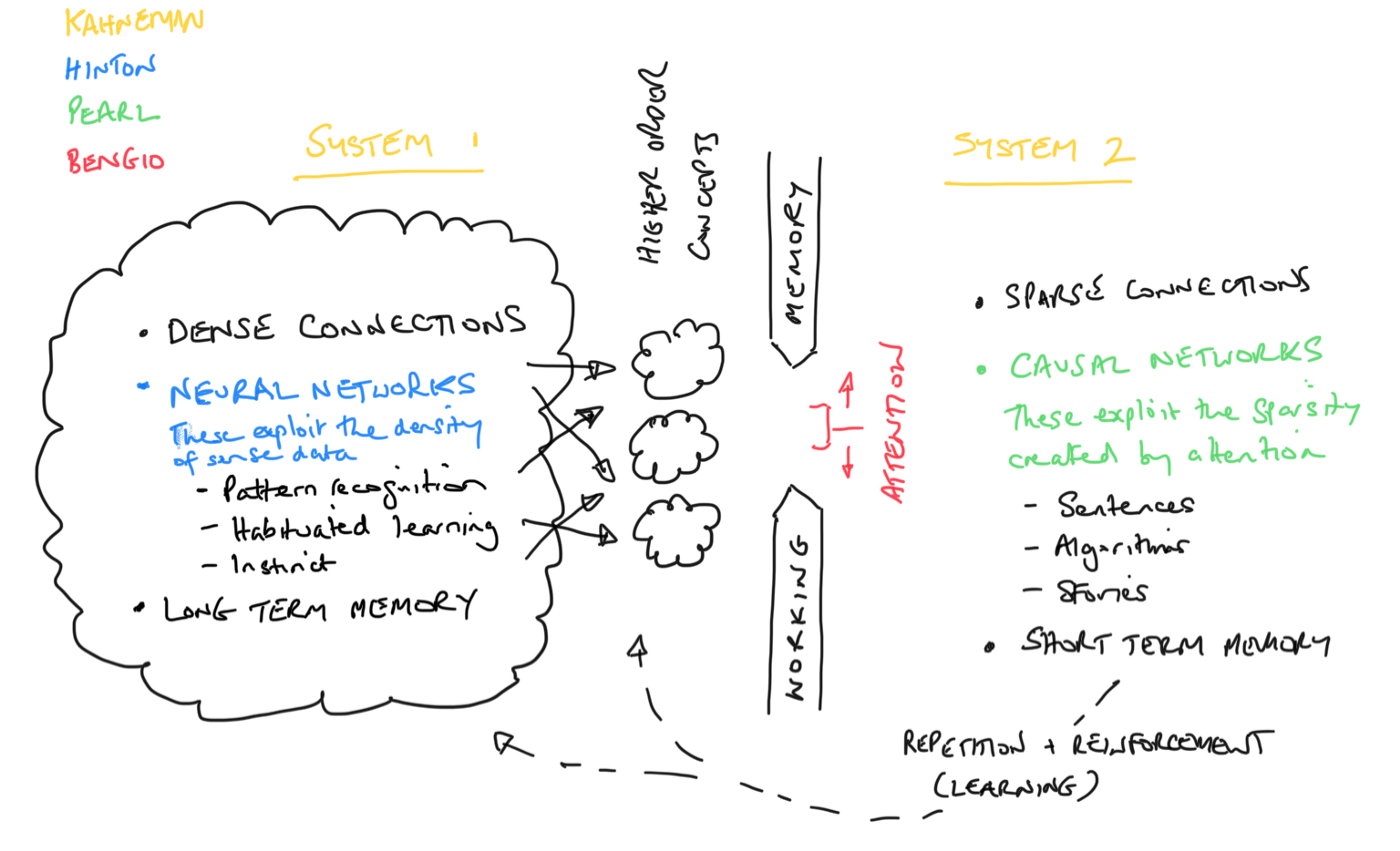 KAHNEMAN
HINTON
PEARL
BENGIO
SYSTEM 1
• DENSE CONNECTIONS
• NEURAL NETWORKS
These exploit the density
of sense data
- Pattern recognition
- Habituated learning
- Instinct
• LONG TERM MEMORY
HIGHER ORDER
CONCEPTS
MEMORY
WORKING
ATTENTION
SYSTEM 2
• SPARSE CONNECTIONS
• CAUSAL NETWORKS
These exploit the sparsity
created by attention
- Sentences
- Algorithms
- Stories
• SHORT TERM MEMORY
REPETITION + REINFORCEMENT
(LEARNING)